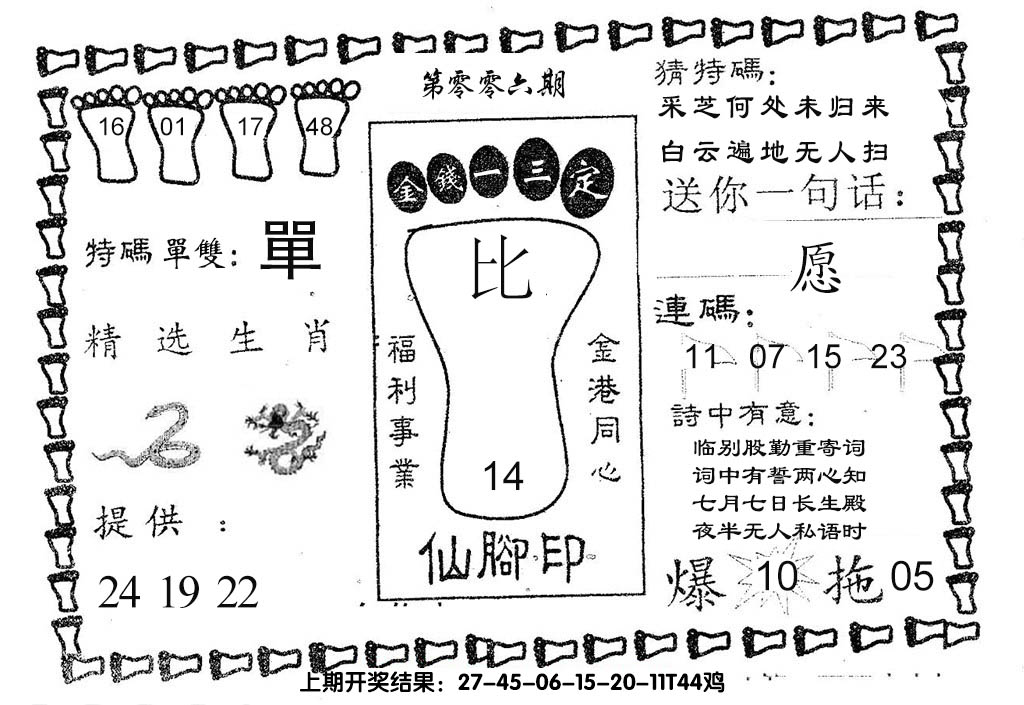 第零零六期
16 01 17 48
特碼單雙: 單
精选生肖
提供 :
24 19 22
金錢一三定
比
福利事業
金港同心
14
仙腳印
猜特碼:
采芝何处未归来
白云遍地无人扫
送你一句话:
愿
連碼:
11 07 15 23
詩中有意:
临别殷勤重寄词
词中有誓两心知
七月七日长生殿
夜半无人私语时
爆 10 拖 05
上期开奖结果: 27-45-06-15-20-11T44鸡